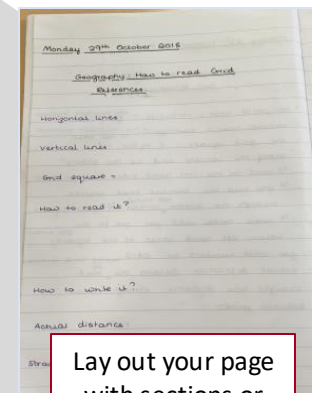 Monday 29th October 2018
Geography: How to read Grid
References.
Horizontal lines:
Vertical lines
Grid square =
How to read it?
How to write it?
Actual distance:
Lay out your page
with sections or